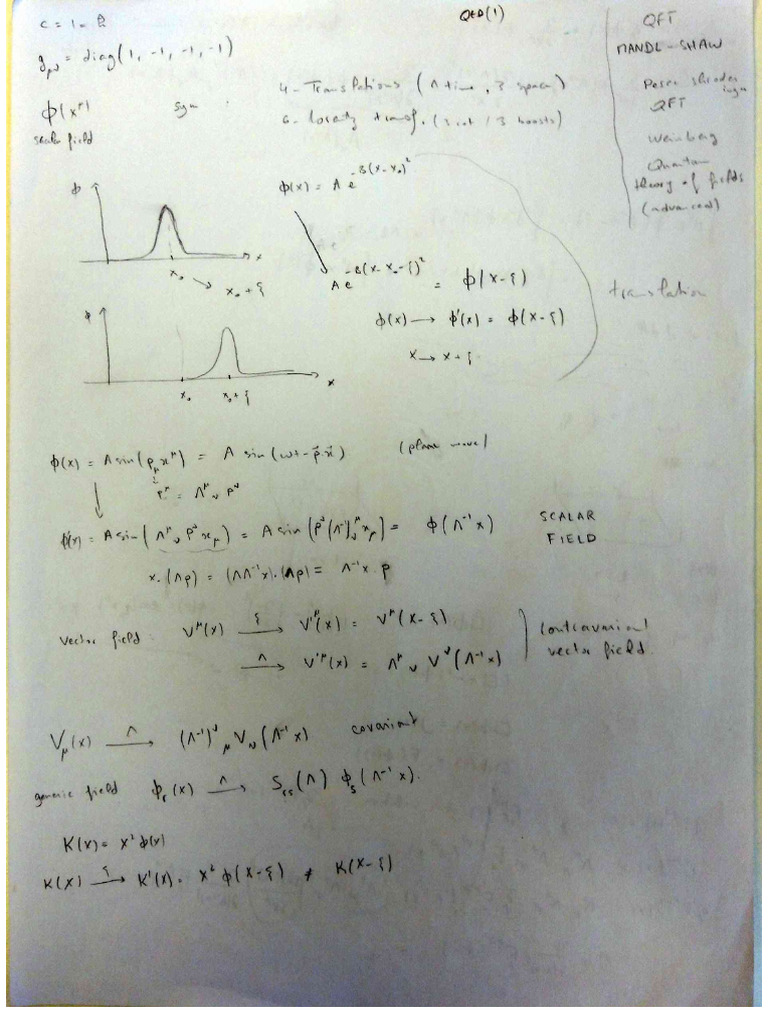 QED(1)
c = 1 = ħ
g_μν = diag(1, -1, -1, -1)
ϕ(x^μ) sym :
scalar field
4 - Translations (1 time, 3 space)
6 - Lorentz transf. (3 rot / 3 boosts)
QFT
MANDL-SHAW
QFT
Weinberg
Quantum
theory of fields
(advanced)
ϕ
x
x₀
x₀ + ξ
ϕ(x) = A e^{-B(x-x₀)²}
A e^{-B(x-x₀-ξ)²} = ϕ(x-ξ)
translation
ϕ(x) → ϕ'(x) = ϕ(x-ξ)
x → x + ξ
ϕ
x
x₀
x₀+ξ
ϕ(x) = A sin(p_μ x^μ) = A sin (ωt - p⃗·x⃗) (plane wave)
p'^μ = Λ^μ_ν p^ν
ϕ'(x) = A sin(Λ^μ_ν p^ν x_μ) = A sin(p^ν (Λ^{-1})_ν^μ x_μ) = ϕ(Λ^{-1}x) SCALAR
FIELD
x·(Λp) = (ΛΛ^{-1}x)·(Λp) = Λ^{-1}x·p
vector field : V^μ(x) —ξ→ V'^μ(x) = V^μ(x-ξ)
—Λ→ V'^μ(x) = Λ^μ_ν V^ν(Λ^{-1}x)
contravariant
vector field.
V_μ(x) —Λ→ (Λ^{-1})^ν_μ V_ν(Λ^{-1}x) covariant
generic field ϕ_r(x) —Λ→ S_rs(Λ) ϕ_s(Λ^{-1}x).
K(x) = x² ϕ(x)
K(x) —ξ→ K'(x) = x² ϕ(x-ξ) ≠ K(x-ξ)